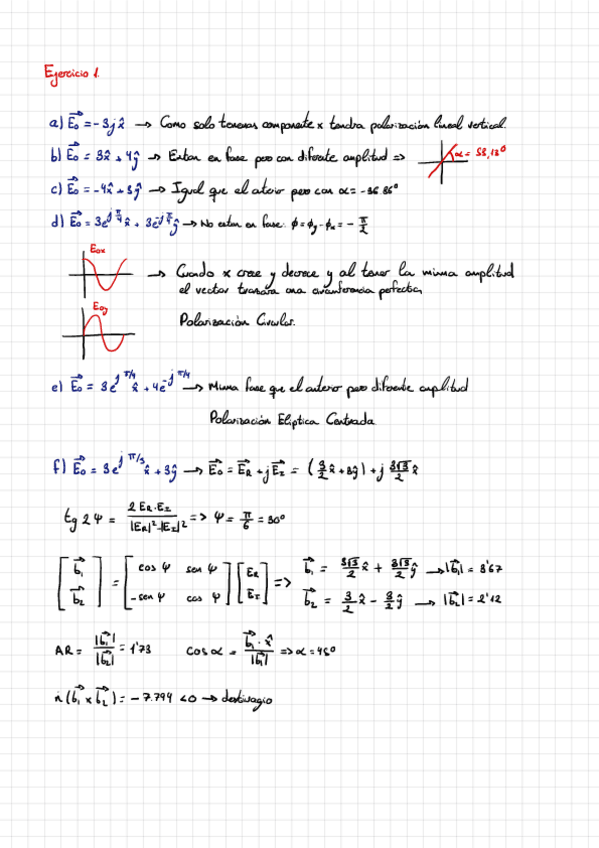 Ejercicio 1.
a) E₀ = -3j x̂ → Como solo tenemos componente x tendra polarización lineal vertical.
b) E₀ = 3x̂ + 4ŷ → Estan en fase pero con difente amplitud => α = 53,13º
c) E₀ = -4x̂ + 3ŷ → Igual que el anterior pero con α = -36.86º
d) E₀ = 3e^{j π/4} x̂ + 3e^{-j π/4} ŷ → No estan en fase. φ = φy - φx = - π/2
Eox
→ Cuando x crece y decrece y al tener la misma amplitud
el vector trazara una circunferencia perfecta,
Eoy
Polarización Circular.
e) E₀ = 3e^{j π/4} x̂ + 4e^{-j π/4} → Misma fase que el anterior pero difente amplitud
Polarización Eliptica Centrada
f) E₀ = 3e^{j π/3} x̂ + 3ŷ → E₀ = E_R + jE_I = (3/2 x̂ + 3ŷ) + j 3√3/2 x̂
tg 2ψ = 2 E_R·E_I / |E_R|² - |E_I|² => ψ = π/6 = 30º
[b₁ b₂] = [cos ψ sen ψ -sen ψ cos ψ] [E_R E_I] => b₁ = 3√3/2 x̂ + 3√3/2 ŷ → |b₁| = 3'67
b₂ = 3/2 x̂ - 3/2 ŷ → |b₂| = 2'12
AR = |b₁| / |b₂| = 1'73 cos α = b₁ · x̂ / |b₁| => α = 45º
n̂ (b₁ × b₂) = - 7.794 < 0 → destivogio